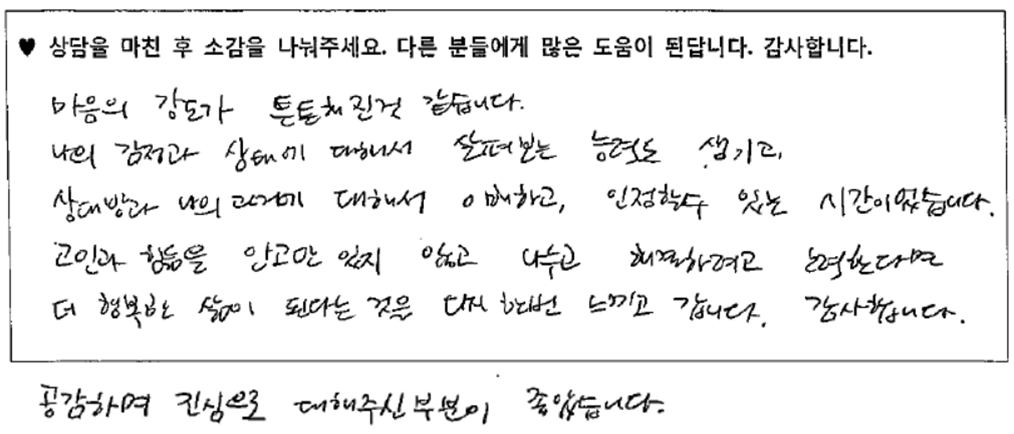 ♥ 상담을 마친 후 소감을 나눠주세요. 다른 분들에게 많은 도움이 된답니다. 감사합니다.
마음의 강도가 튼튼해진것 같습니다.
나의 감정과 상태에 대해서 살펴보는 능력도 생기고,
상대방과 나의 과거에 대해서 이해하고, 인정할수 있는 시간이었습니다.
고민과 힘듦을 안고만 있지 않고 나누고 해결하려고 노력한다면
더 행복한 삶이 된다는 것을 다시 한번 느끼고 갑니다. 감사합니다.
공감하며 진심으로 대해주신 부분이 좋았습니다.